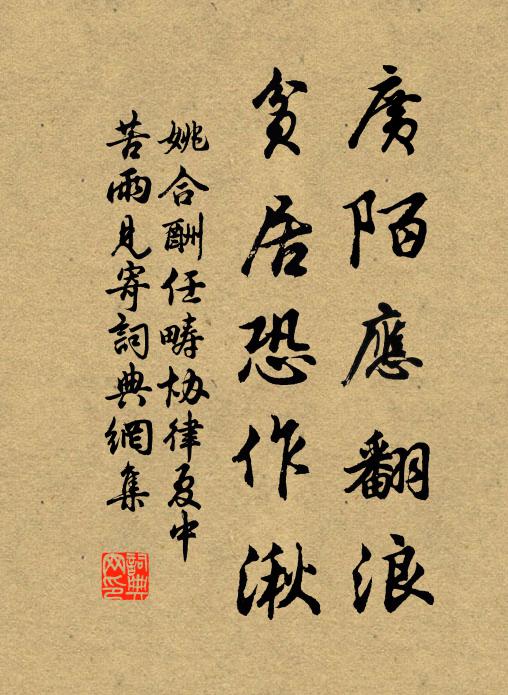 廣陌應翻浪
貧居恐作湫
姚合酬任疇協律夏中
苦雨見寄詞典網集
詞典
网印